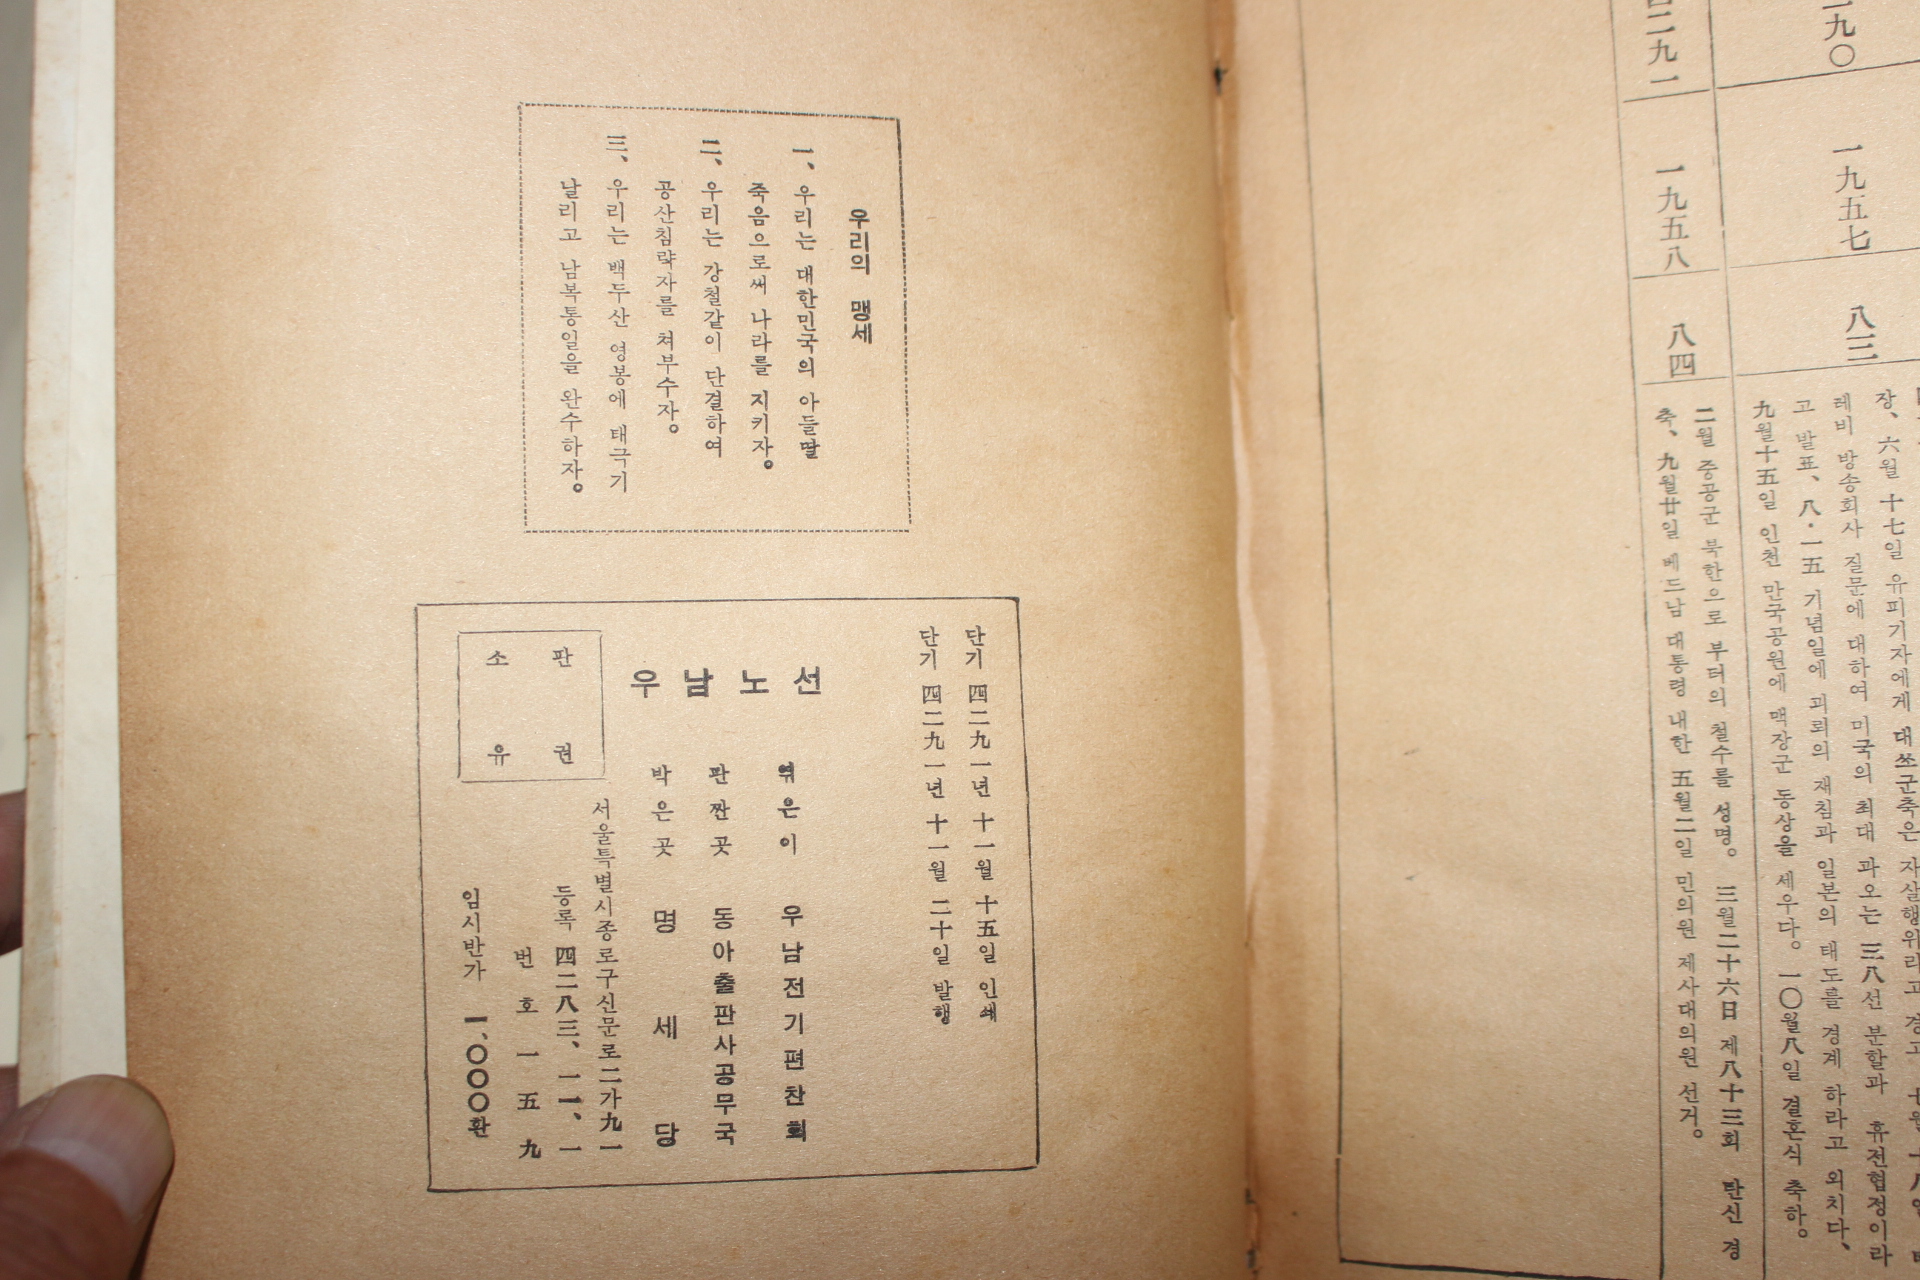 二九〇
一九五七
八三
장、六월 十七일 유피기자에게 대쏘군축은 자살행위라고 경고
레비 방송회사 질문에 대하여 미국의 최대 과오는 三八선 분할과 휴전협정이라
고 발표、八·一五 기념일에 괴뢰의 재침과 일본의 태도를 경계 하라고 외치다、
九월十五일 인천 만국공원에 맥장군 동상을 세우다。一〇월八일 결혼식 축하。
四二九一
一九五八
八四
二월 중공군 북한으로 부터의 철수를 성명。三월二十六日 제八十三회 탄신 경
축、九월廿일 베드남 대통령 내한 五월二일 민의원 제사대의원 선거。
우리의 맹세
一、우리는 대한민국의 아들딸
죽음으로써 나라를 지키자。
二、우리는 강철같이 단결하여
공산침략자를 쳐부수자。
三、우리는 백두산 영봉에 태극기
날리고 남북통일을 완수하자。
단기 四二九一년 十一월 十五일 인쇄
단기 四二九一년 十一월 二十일 발행
우남노선
엮은이 우남전기편찬회
판짠곳 동아출판사공무국
박은곳 명세당
서울특별시종로구신문로二가九一
등록 四二八三、一一、一
번호 一五九
임시반가 一、〇〇〇환
판권
소유